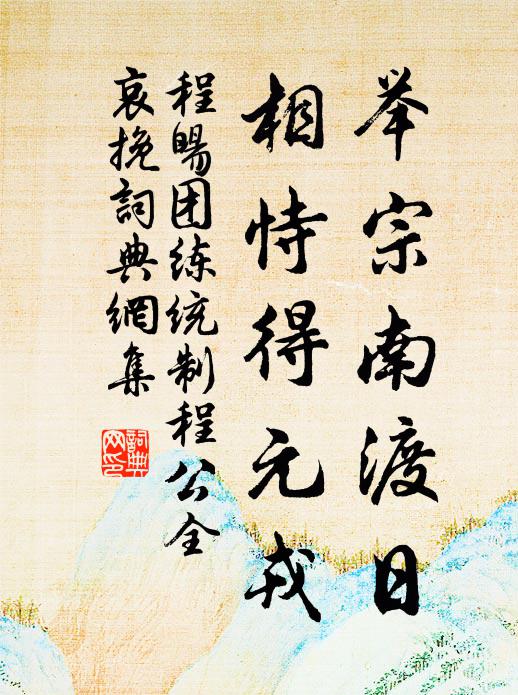 举宗南渡日
相恃得元戎
程鳴团练统制程公全
哀挽詞典網集
詞典
网印